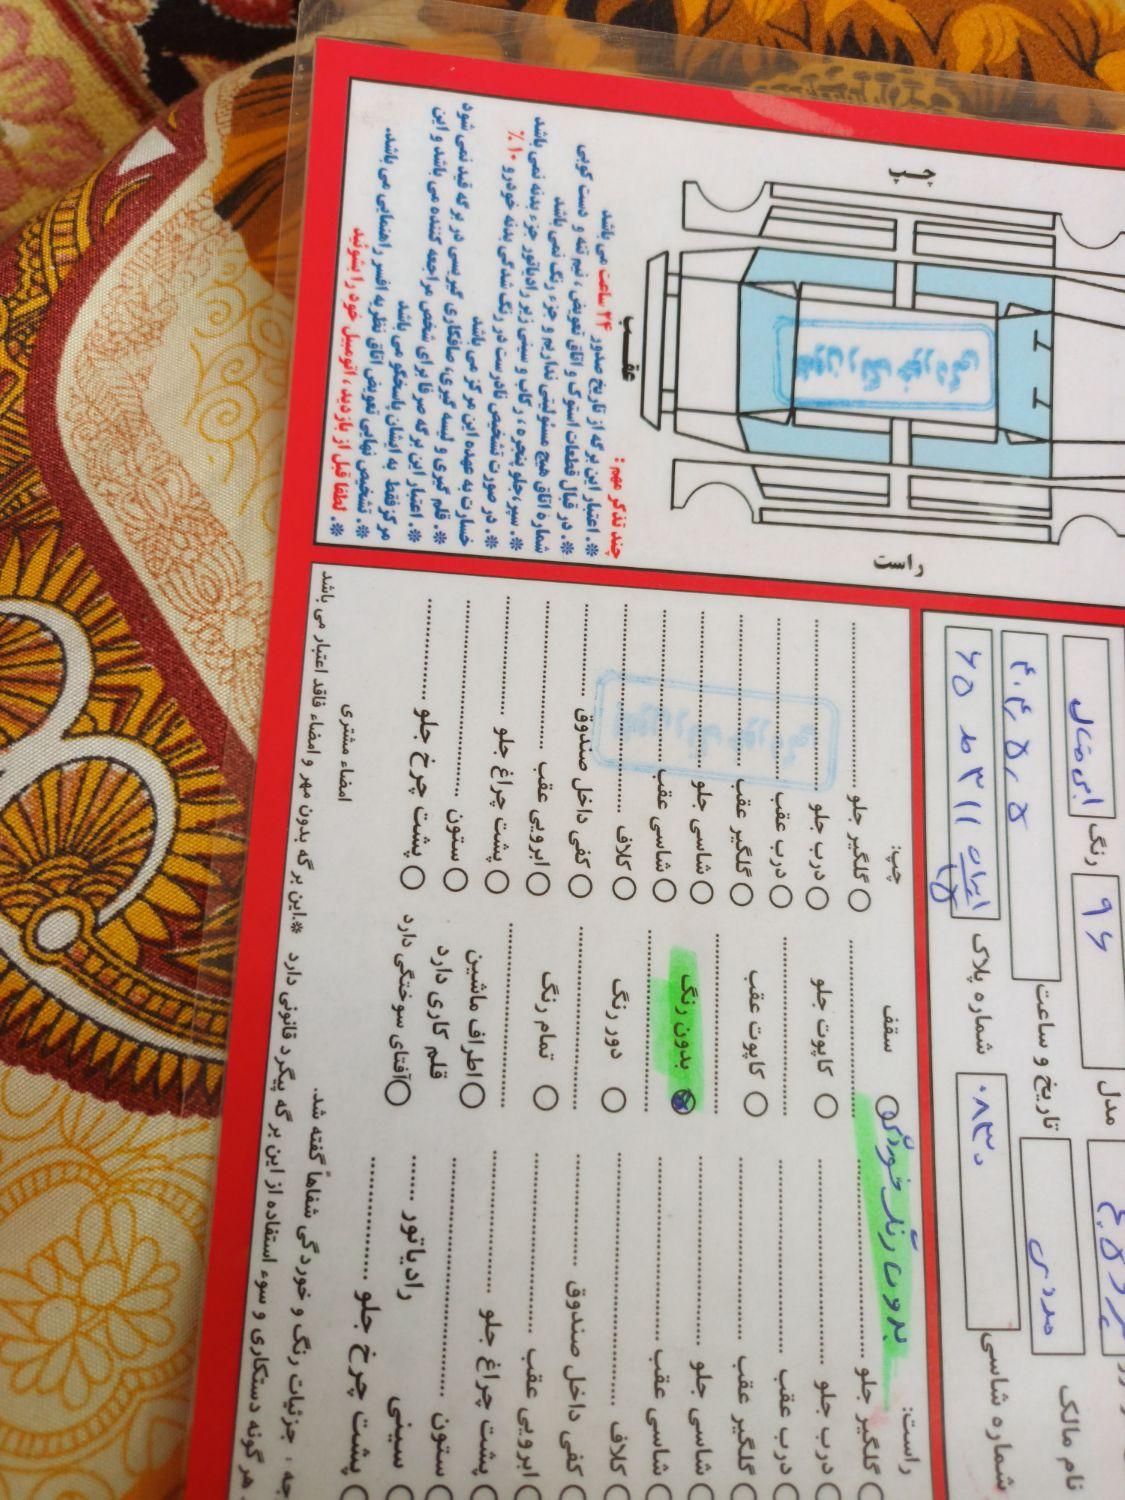 نام مالک
مددی
مدل
۹۶
رنگ
ابی متال
شماره شاسی
۰۸۳۰
تاریخ و ساعت
شماره پلاک
ایران
چپ
عقب
راست
چند تذکر مهم :
❊. اعتبار این برگه از تاریخ صدور ۲۴ ساعت می باشد
❊. در قبال قطعات استوک و اتاق تعویض ، نیم تنه و دست کوبی
شماره اتاق هیچ مسئولیتی نداریم و جزء رنگ نمی باشد
❊. سپر،جلو پنجره ، رکاب و سینی زیر رادیاتور جزء بدنه نمی باشد
❊. در صورت تشخیص نادرست در رنگ شدگی بدنه خودرو ۱۰٪
خسارت به عهده این مرکز می باشد
❊. قلم گیری و لیسه گیری، صافکاری گیریسی در برگه قید نمی شود
❊. اعتبار این برگه صرفا برای شخص مراجعه کننده می باشد و این
مرکز فقط به ایشان پاسخگو می باشد
❊. تشخیص نهایی تعویض اتاق نظریه افسر راهنمایی می باشد.
❊. لطفا قبل از بازدید ، اتومبیل خود را بشوئید
راست:
گلگیر جلو
درب جلو
درب عقب
گلگیر عقب
شاسی جلو
شاسی عقب
کلاف
کفی داخل صندوق
ابرویی عقب
پشت چراغ جلو
ستون
سینی
رادیاتور
پشت چرخ جلو
سقف
بدون رنگ خوردگی
کاپوت جلو
کاپوت عقب
بدون رنگ
دور رنگ
تمام رنگ
اطراف ماشین
قلم کاری دارد
آفتای سوختگی دارد
چپ:
گلگیر جلو
درب جلو
درب عقب
گلگیر عقب
شاسی جلو
شاسی عقب
کلاف
کفی داخل صندوق
ابرویی عقب
پشت چراغ جلو
ستون
پشت چرخ جلو
جزئیات رنگ و خوردگی شفاهاً گفته شد.
امضاء مشتری
هر گونه دستکاری و سوء استفاده از این برگه پیگرد قانونی دارد ❊.این برگه بدون مهر و امضاء فاقد اعتبار می باشد